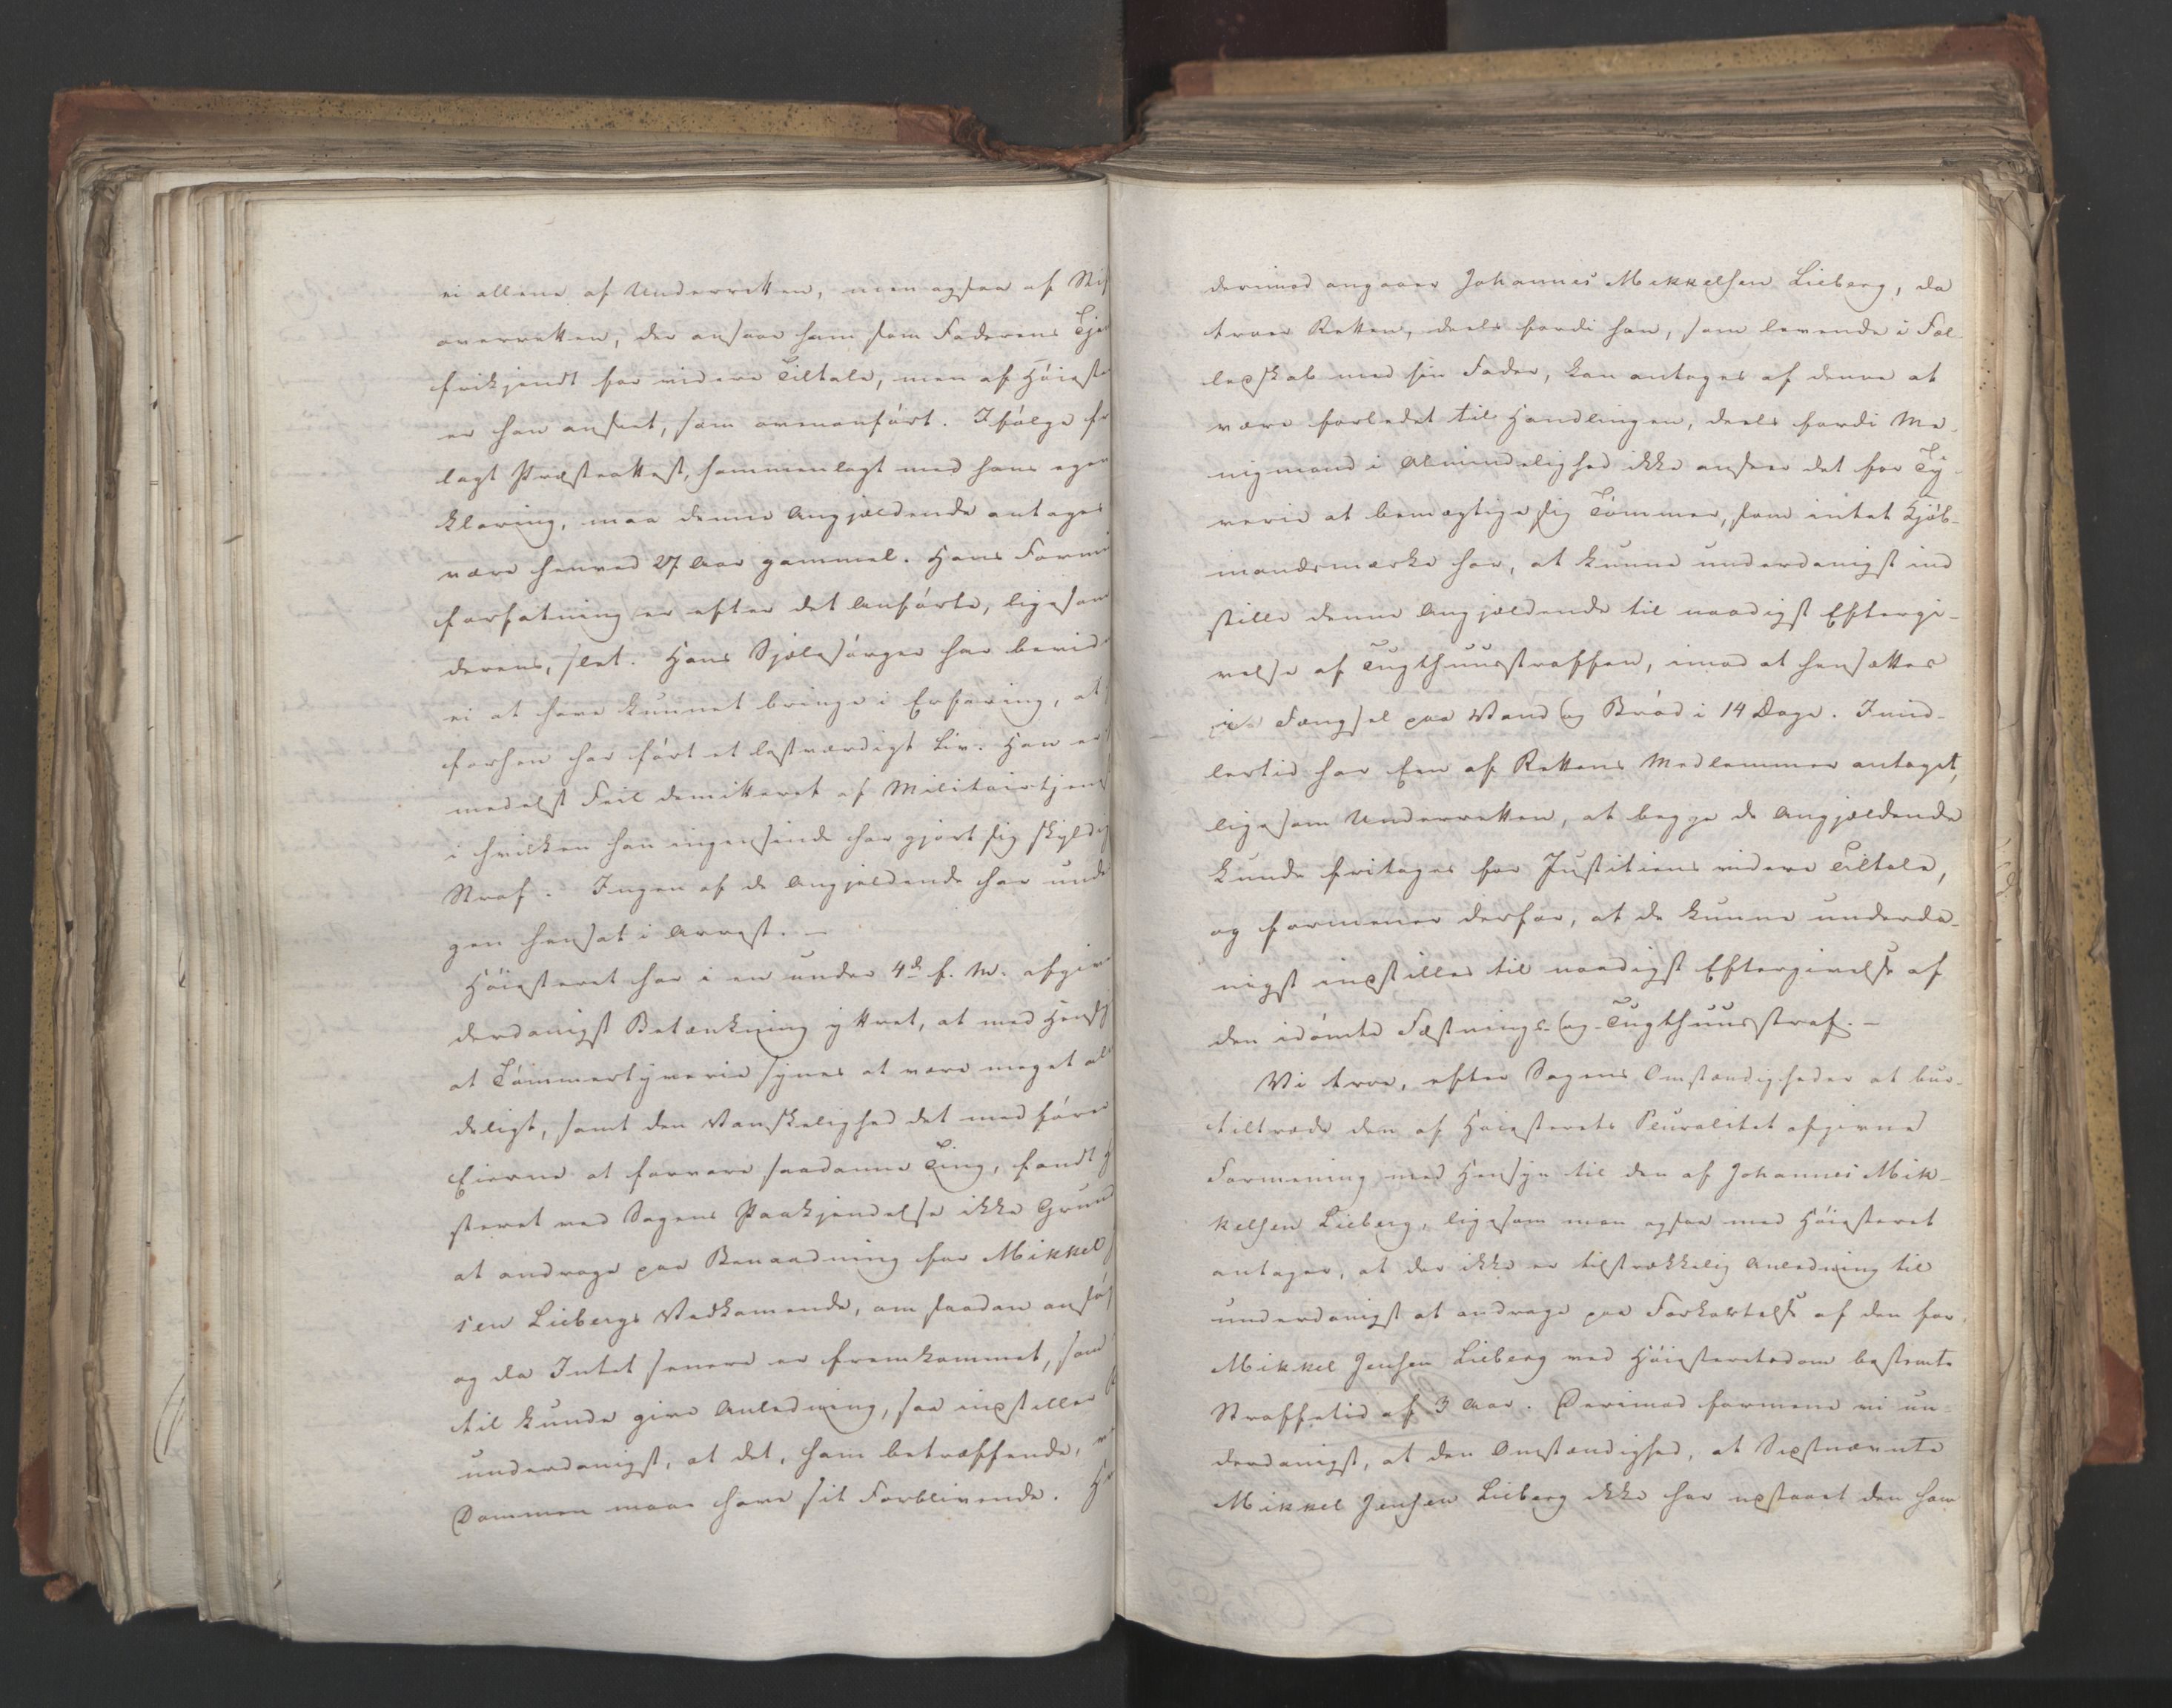 ei allene af Underretten, men ogsaa af Stif
overretten, der ansaae ham som Faderens Tje
frikjendt for videre Tiltale, men af Höieste
er han anseet, som ovenanfört. Ifölge fr
lagt Præsteattest, sammenlagt med hans egen
klaring, maa denne Angjældende antages
være henved 27 Aar gammel. Hans Formu
forfatning er efter det Anförte, ligesom
derens, slet. Hans Sjælesörger har bevid
ei at have kunnet bringe i Erfaring, at
forhen har fört et lastværdigt Liv. Han er
medelst Feil demitteret af Militairtjene
i hvilken han ingensinde har gjort sig skyldig
Straf. Ingen af de Angjældende har unde
gen hensat i Arrest. –
Höiesteret har i en under 4d. f. M. afgiv
derdanigst Betænkning yttret, at med Hensy
at Tömmertyverie synes at være meget al
deligt, samt den Vanskelighed det medförer
Eierne at forvare saadanne Ting, fandt H
steret ved Sagens Paakjendelse ikke Grund
at andrage paa Benaadning for Mikkel J
sen Liebergs Vedkomende, om saadan ansög
og da Intet senere er fremkommet, som
til kunde give Anledning, saa indstilles
underdanigst, at det, ham betræffende, v
Dommen maae have sit Forblivende. H
derimod angaaer Johannes Mekkelsen Lieberg, da
troer Retten, deels fordi han, som levende i Fæl-
ledsskab med sin Fader, kan antages af denne at
være forledet til Handlingen, deels fordi Me-
nigmand i Almindelighed ikke anseer det for Ty-
verie at bemægtige sig Tömmer, som intet Kjöb-
mandsmærke har, at kunne underdanigst ind
stille denne Angjældende til naadigst Eftergi-
velse af Tugthuusstraffen, imod at hensættes
i Fængsel paa Vand og Bröd i 14 Dage. Imid-
lertid har Een af Rettens Medlemmer antaget,
ligesom Underretten, at begge de Angjældende
kunde fritages for Justitiens videre Tiltale,
og formener derfor, at de kunne underda-
nigst indstilles til naadigst Eftergivelse af
den idömte Fæstnings- og Tugthuusstraf. –
Vi troe, efter Sagens Omstændigheder at bur-
tiltræde den af Höiesterets Pluralitet afgivne
Formening med Hensyn til den af Johannes Mik-
kelsen Lieberg, ligesom man ogsaa med Höiesteret
antager, at der ikke er tilstrækkelig Anledning til
underdanigst at andrage paa Forkortelse af den for
Mikkel Jensen Lieberg ved Höiesteretsdom bestemte
Straffetid af 3 Aar. Derimod formene vi un-
derdanigst, at den Omstændighed, at Sidstnævnte
Mikkel Jensen Lieberg ikke har udstaaet den ham